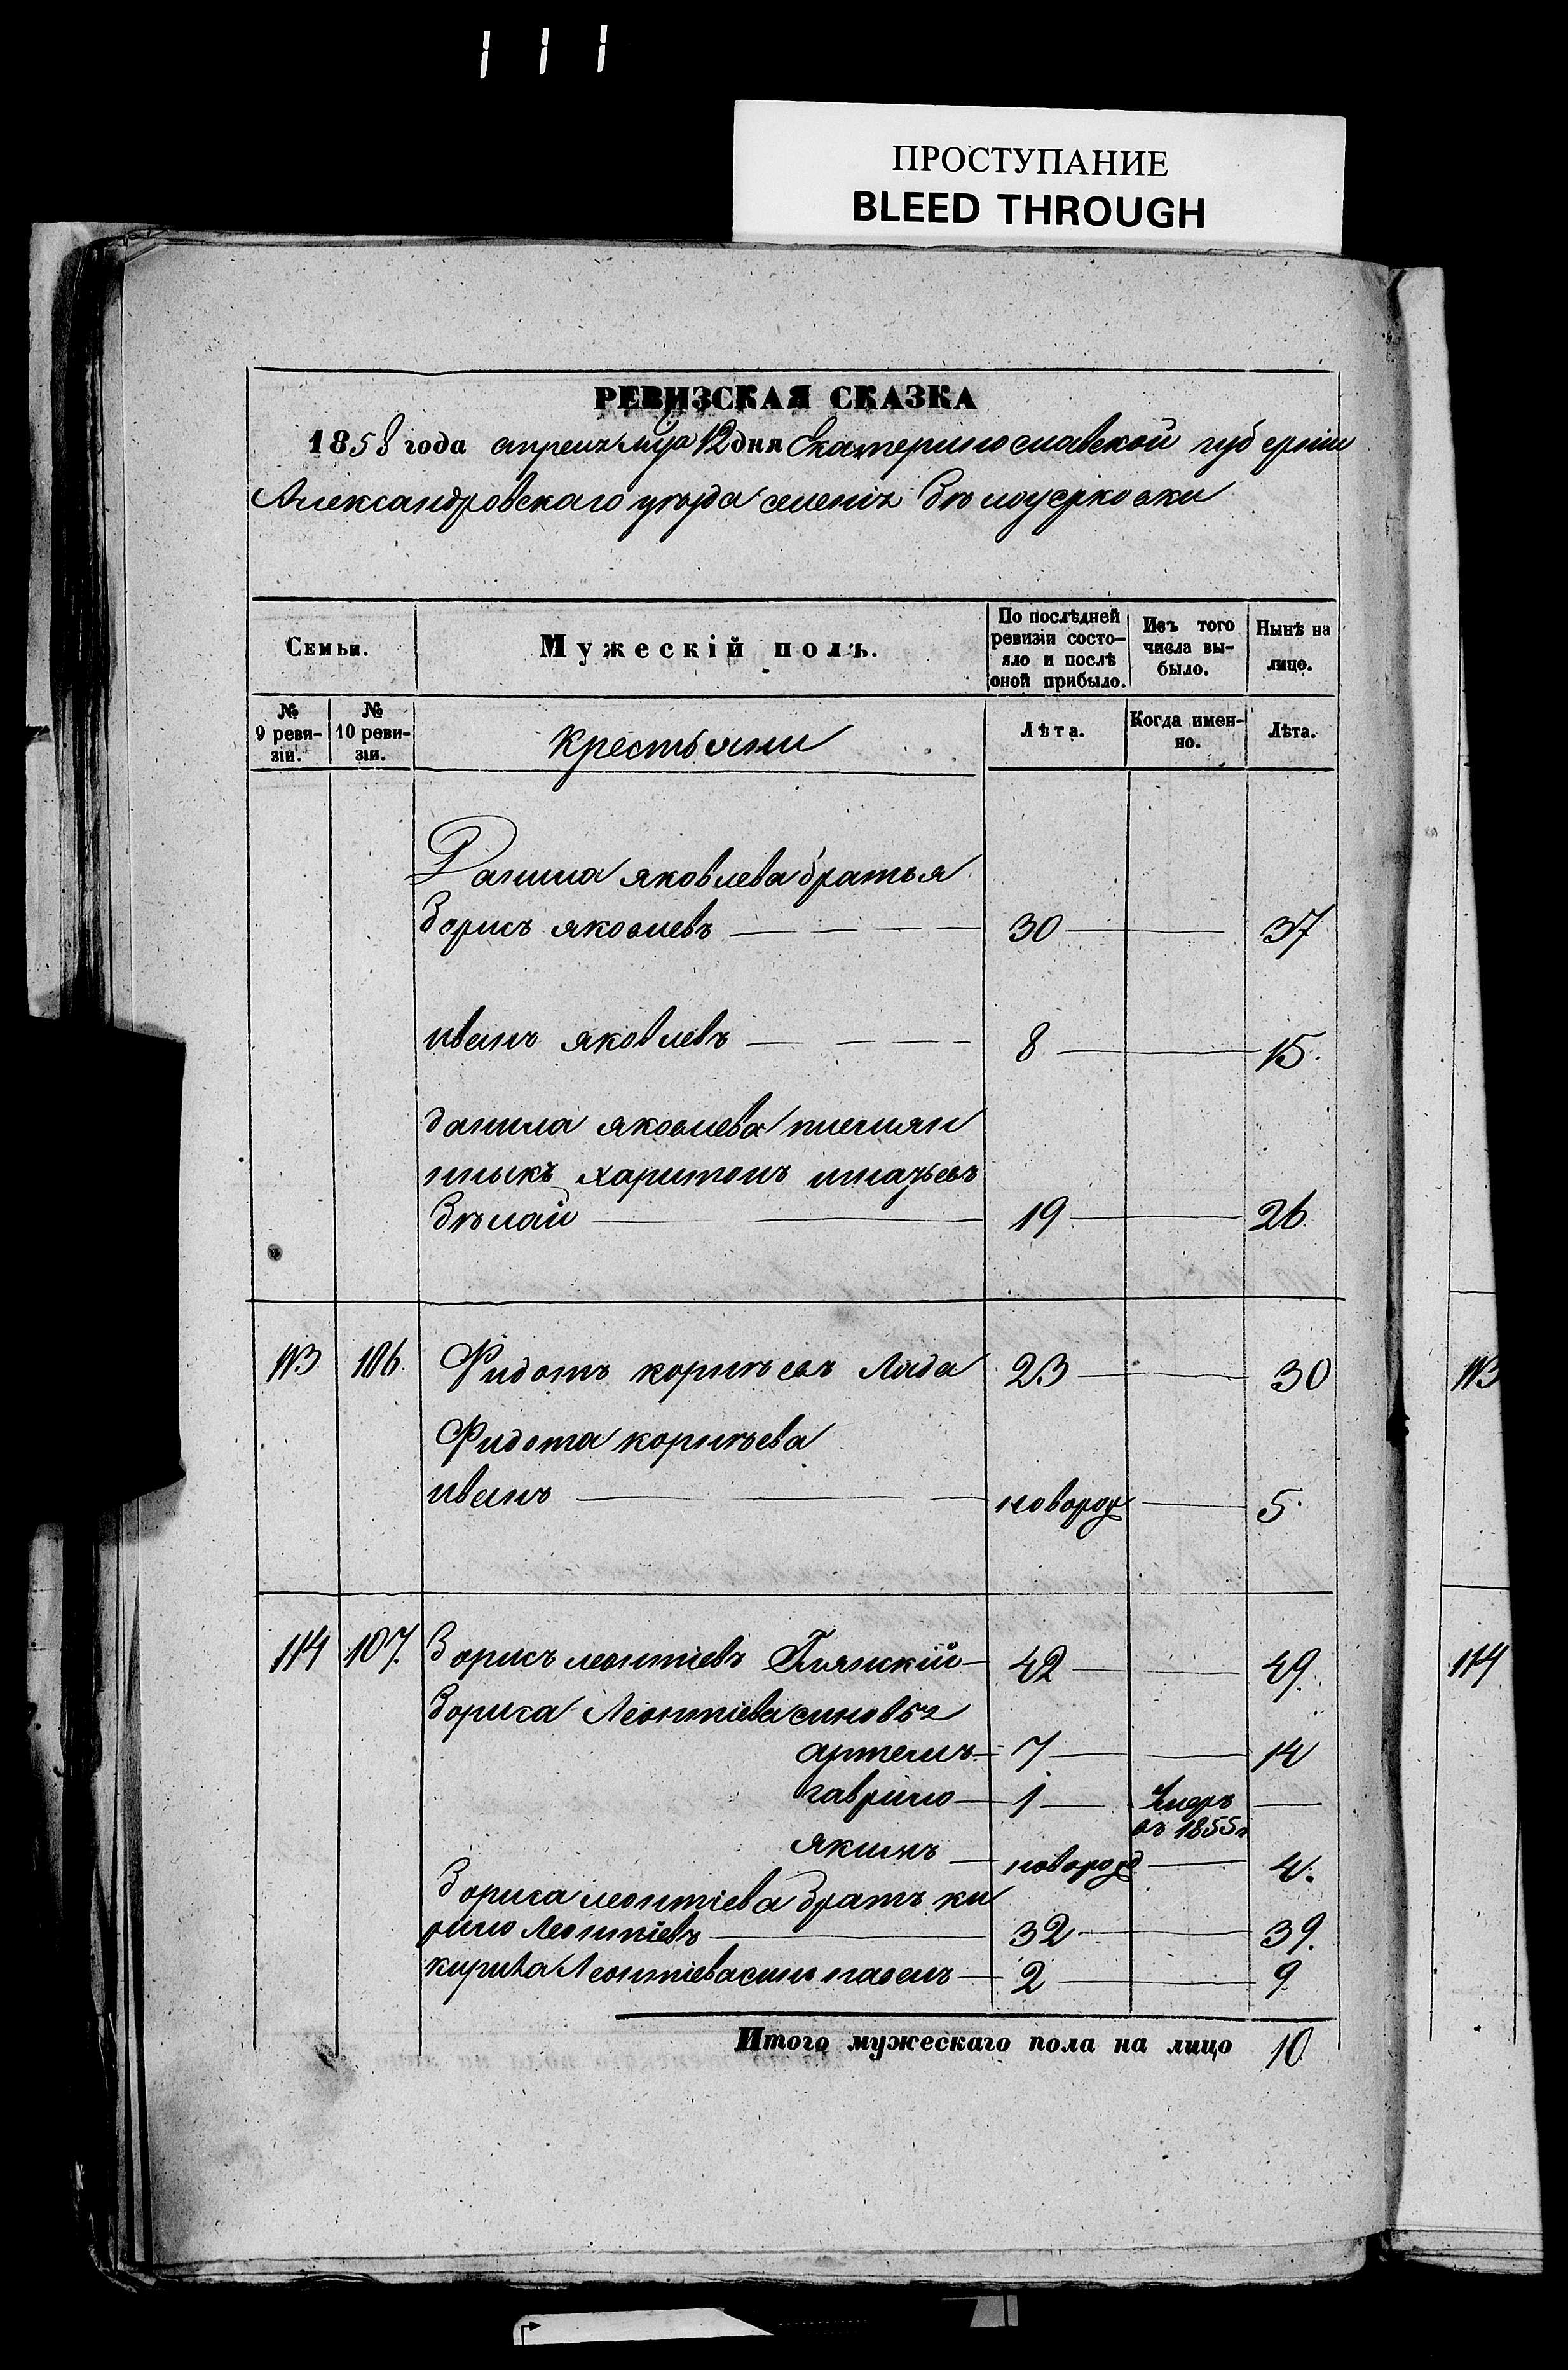 ПРОСТУПАНИЕ
BLEED THROUGH
РЕВИЗСКАЯ СКАЗКА
1858 года апреля мца 12 дня Екатеринославской губерніи
Александровскаго уѣзда селенія бѣлоцерковки
Семьи.
Мужескій полъ.
По послѣдней ревизіи состо-
яло и послѣ
оной прибыло.
Изъ того
числа вы-
было.
Нынѣ на
лицо.
№
9 реви-
зіи.
№
10 реви-
зіи.
крестьяни
Лѣта.
Когда имен-
но.
Лѣта.
Данила яковлева братья
борисъ яковлевъ 30 37
иванъ яковлевъ 8 15.
данила яковлева племян
ныкъ харитонъ игнатьевъ
бѣлай 19 26.
113 106. Фидотъ корнѣевъ Ляда 23 30
Фидота корнѣева
иванъ новорож 5.
114 107. Борисъ леонтіевъ 42 49.
Бориса Леонтіева синовья
артемъ 7 14
гаврило 1 Умеръ
въ 1855г
якимъ новорожд 4.
Бориса леонтіева братъ ки
рило Леонтіевъ 32 39.
кирила Леонтіева синъ павелъ 2 9.
Итого мужескаго пола на лицо 10
113
114